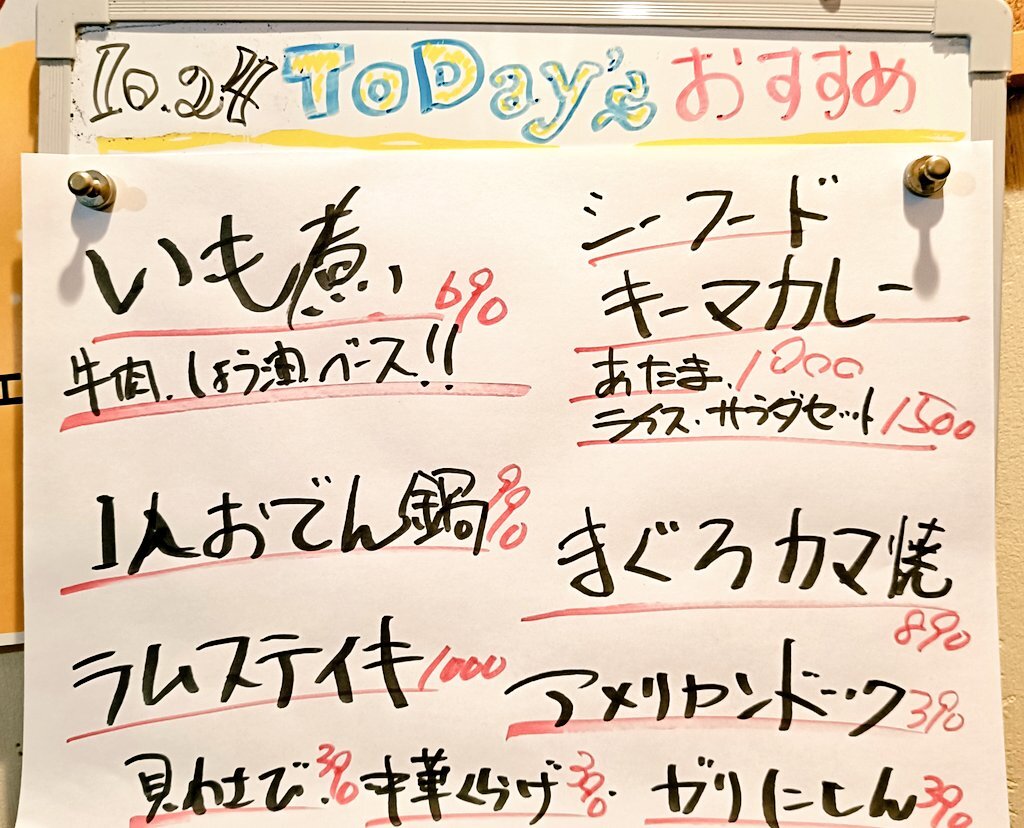 10.24 ToDay's おすすめ
いも煮 690
牛肉.しょう油ベース!!
1人おでん鍋 990
ラムステイキ 1000
シーフード
キーマカレー
あたま.1000
ライス.サラダセット 1500
まぐろカマ焼
890
アメリカンドック 390
貝わさび.390 中華くらげ 390. ガリにしん 390